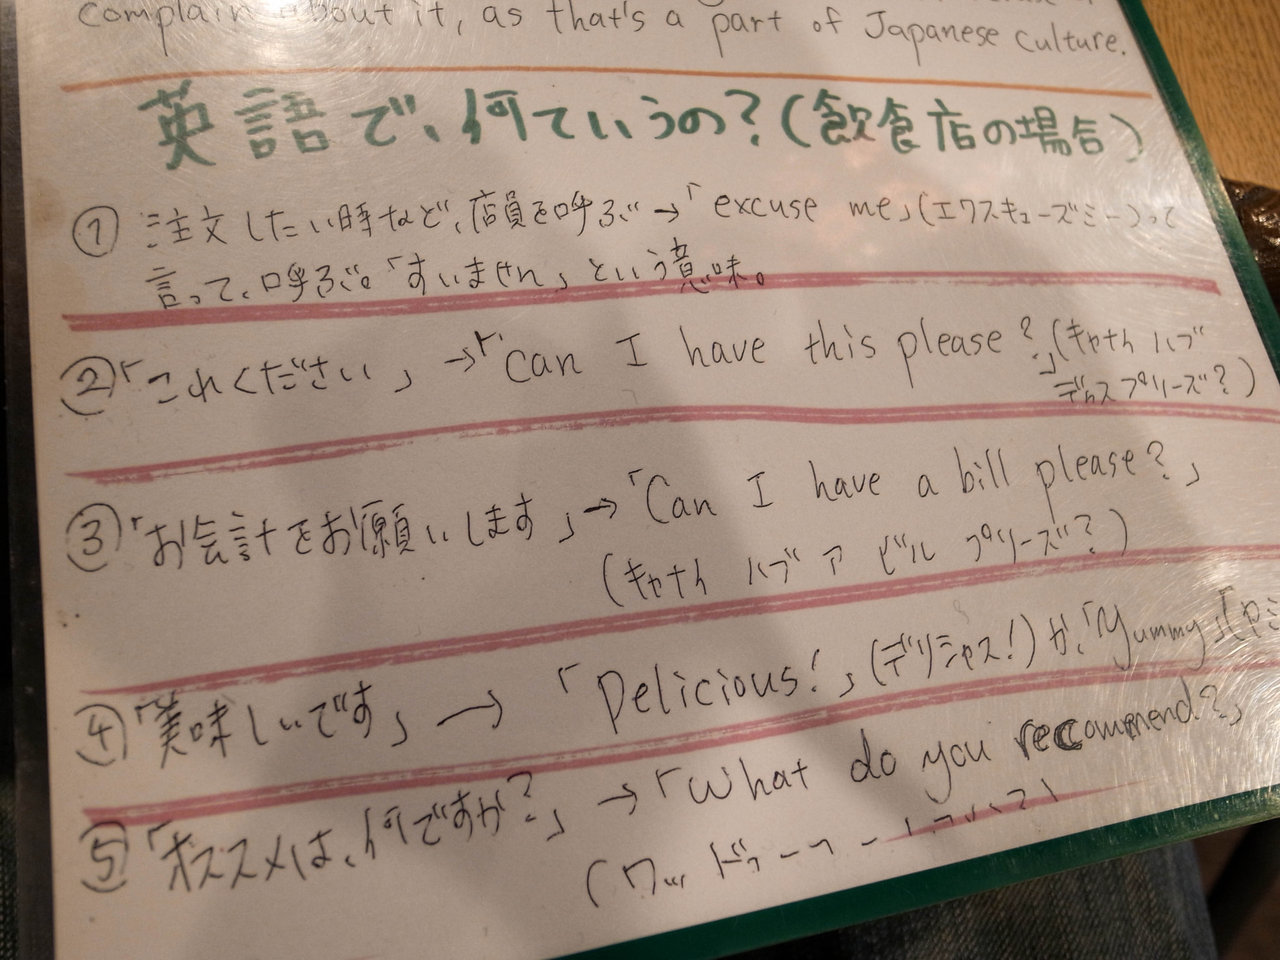 complain about it, as that's a part of Japanese culture.
英語で、何ていうの?(飲食店の場合)
① 注文したい時など、店員を呼ぶ→「excuse me」(エクスキューズミー)って
言って、呼ぶ。「すいません」という意味。
②「これください」→「Can I have this please?」(キャナイ ハブ
ディス プリーズ?)
③「お会計をお願いします」→「Can I have a bill please?」
(キャナイ ハブ ア ビル プリーズ?)
④「美味しいです」→「Delicious!」(デリシャス!)か、「Yummy」(ヤミ
⑤「オススメは、何ですか?」→「What do you recommend?」
(ワット ドゥー